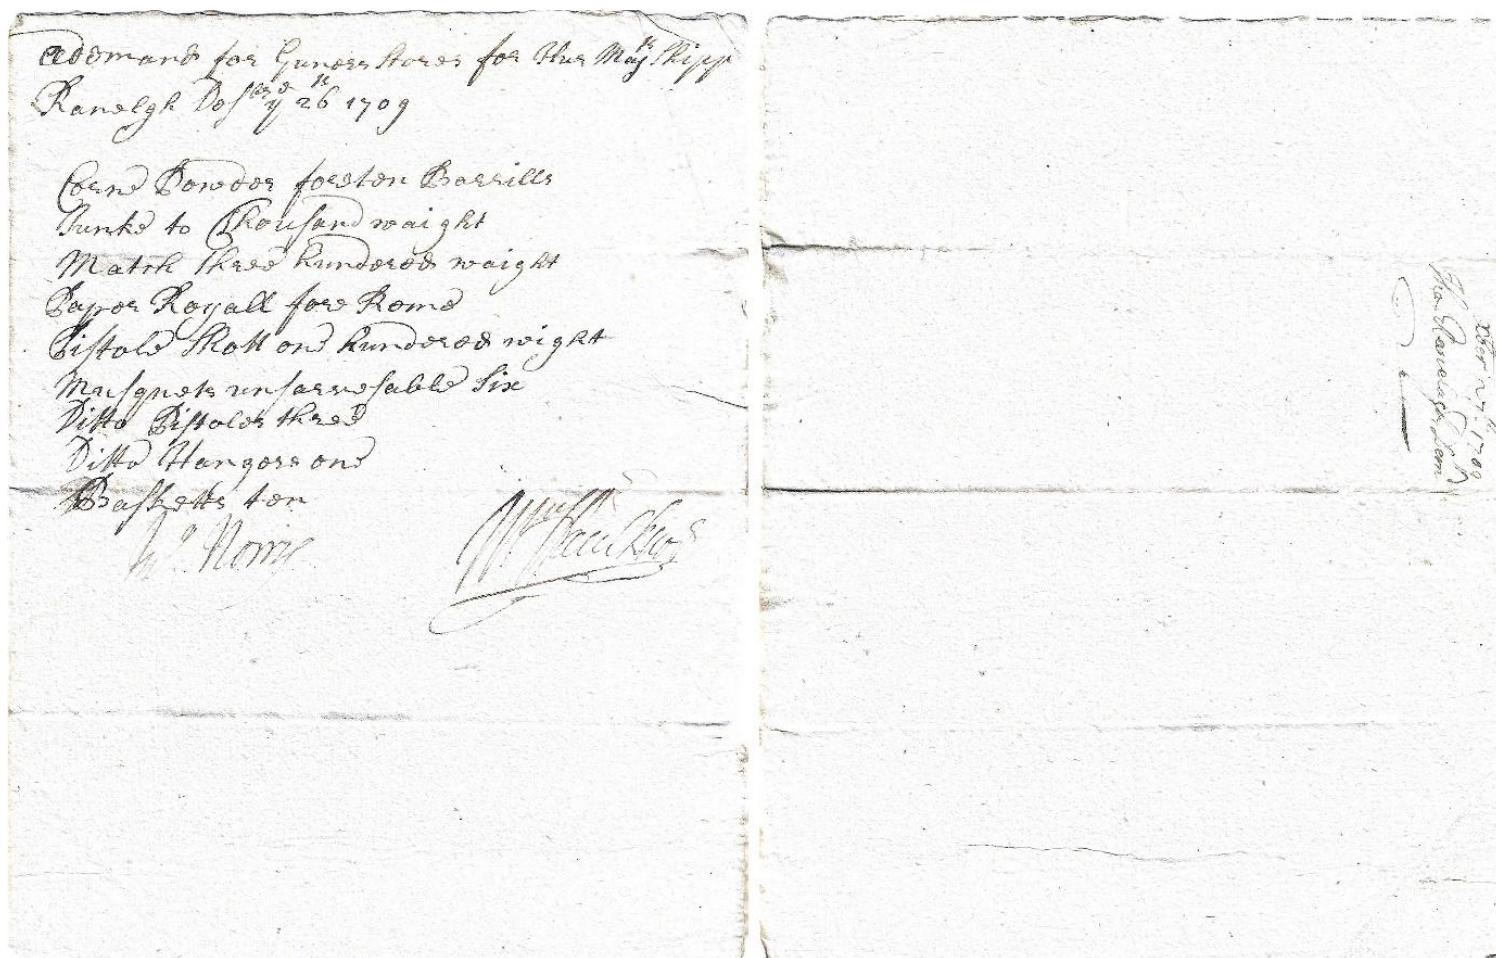 a demand for Guners stores for Hur Maj.ts Shipp
Ranelgh Des.ber ye 26th 1709
Corne Powder foreten Barrills
Junke to Thousand waight
Match three hundered waight
Paper Royall fore Rome
Pistole Shott one hundered wight
Musquets unsarvesable Six
Ditto Pistoles three
Ditto Hangers one
Basketts ten
Norris
Xber 27th 1709
The Ranelagh's Dem.d